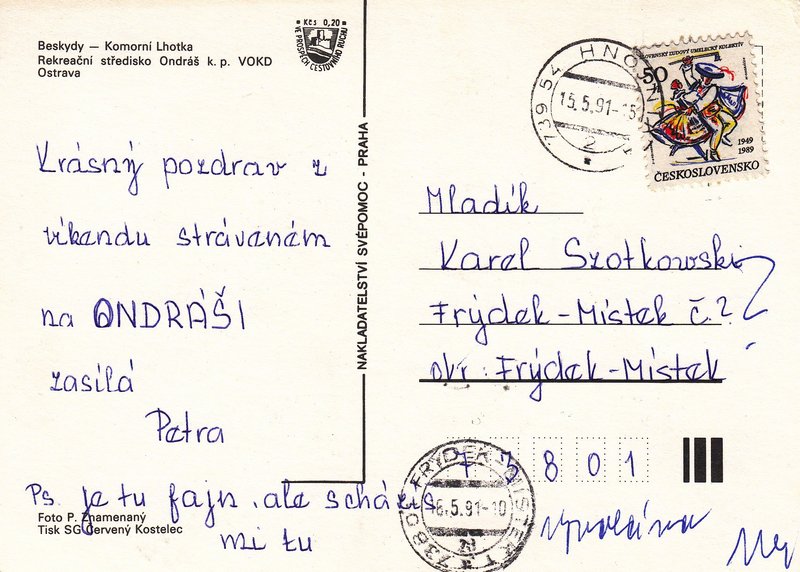 Beskydy — Komorní Lhotka
Rekreační středisko Ondráš k. p. VOKD
Ostrava
Kčs 0,20
VE PROSPĚCH CESTOVNÍHO RUCHU
Krásný pozdrav z
víkendu stráveném
na ONDRÁŠI
zasílá
Petra
Ps. je tu fajn, ale scházíš
mi tu
Foto P. Znamenaný
Tisk SG Červený Kostelec
NAKLADATELSTVÍ SVÉPOMOC - PRAHA
739 54 HNOJNÍK
15.5.91-15
2
SLOVENSKÝ ĽUDOVÝ UMELECKÝ KOLEKTÍV
50
1949
1989
ČESKOSLOVENSKO
Mladík
Karel Szotkowski
Frýdek-Místek č.?
okr. Frýdek-Místek
801
FRÝDEK-MÍSTEK 1
6.5.91-10
73801